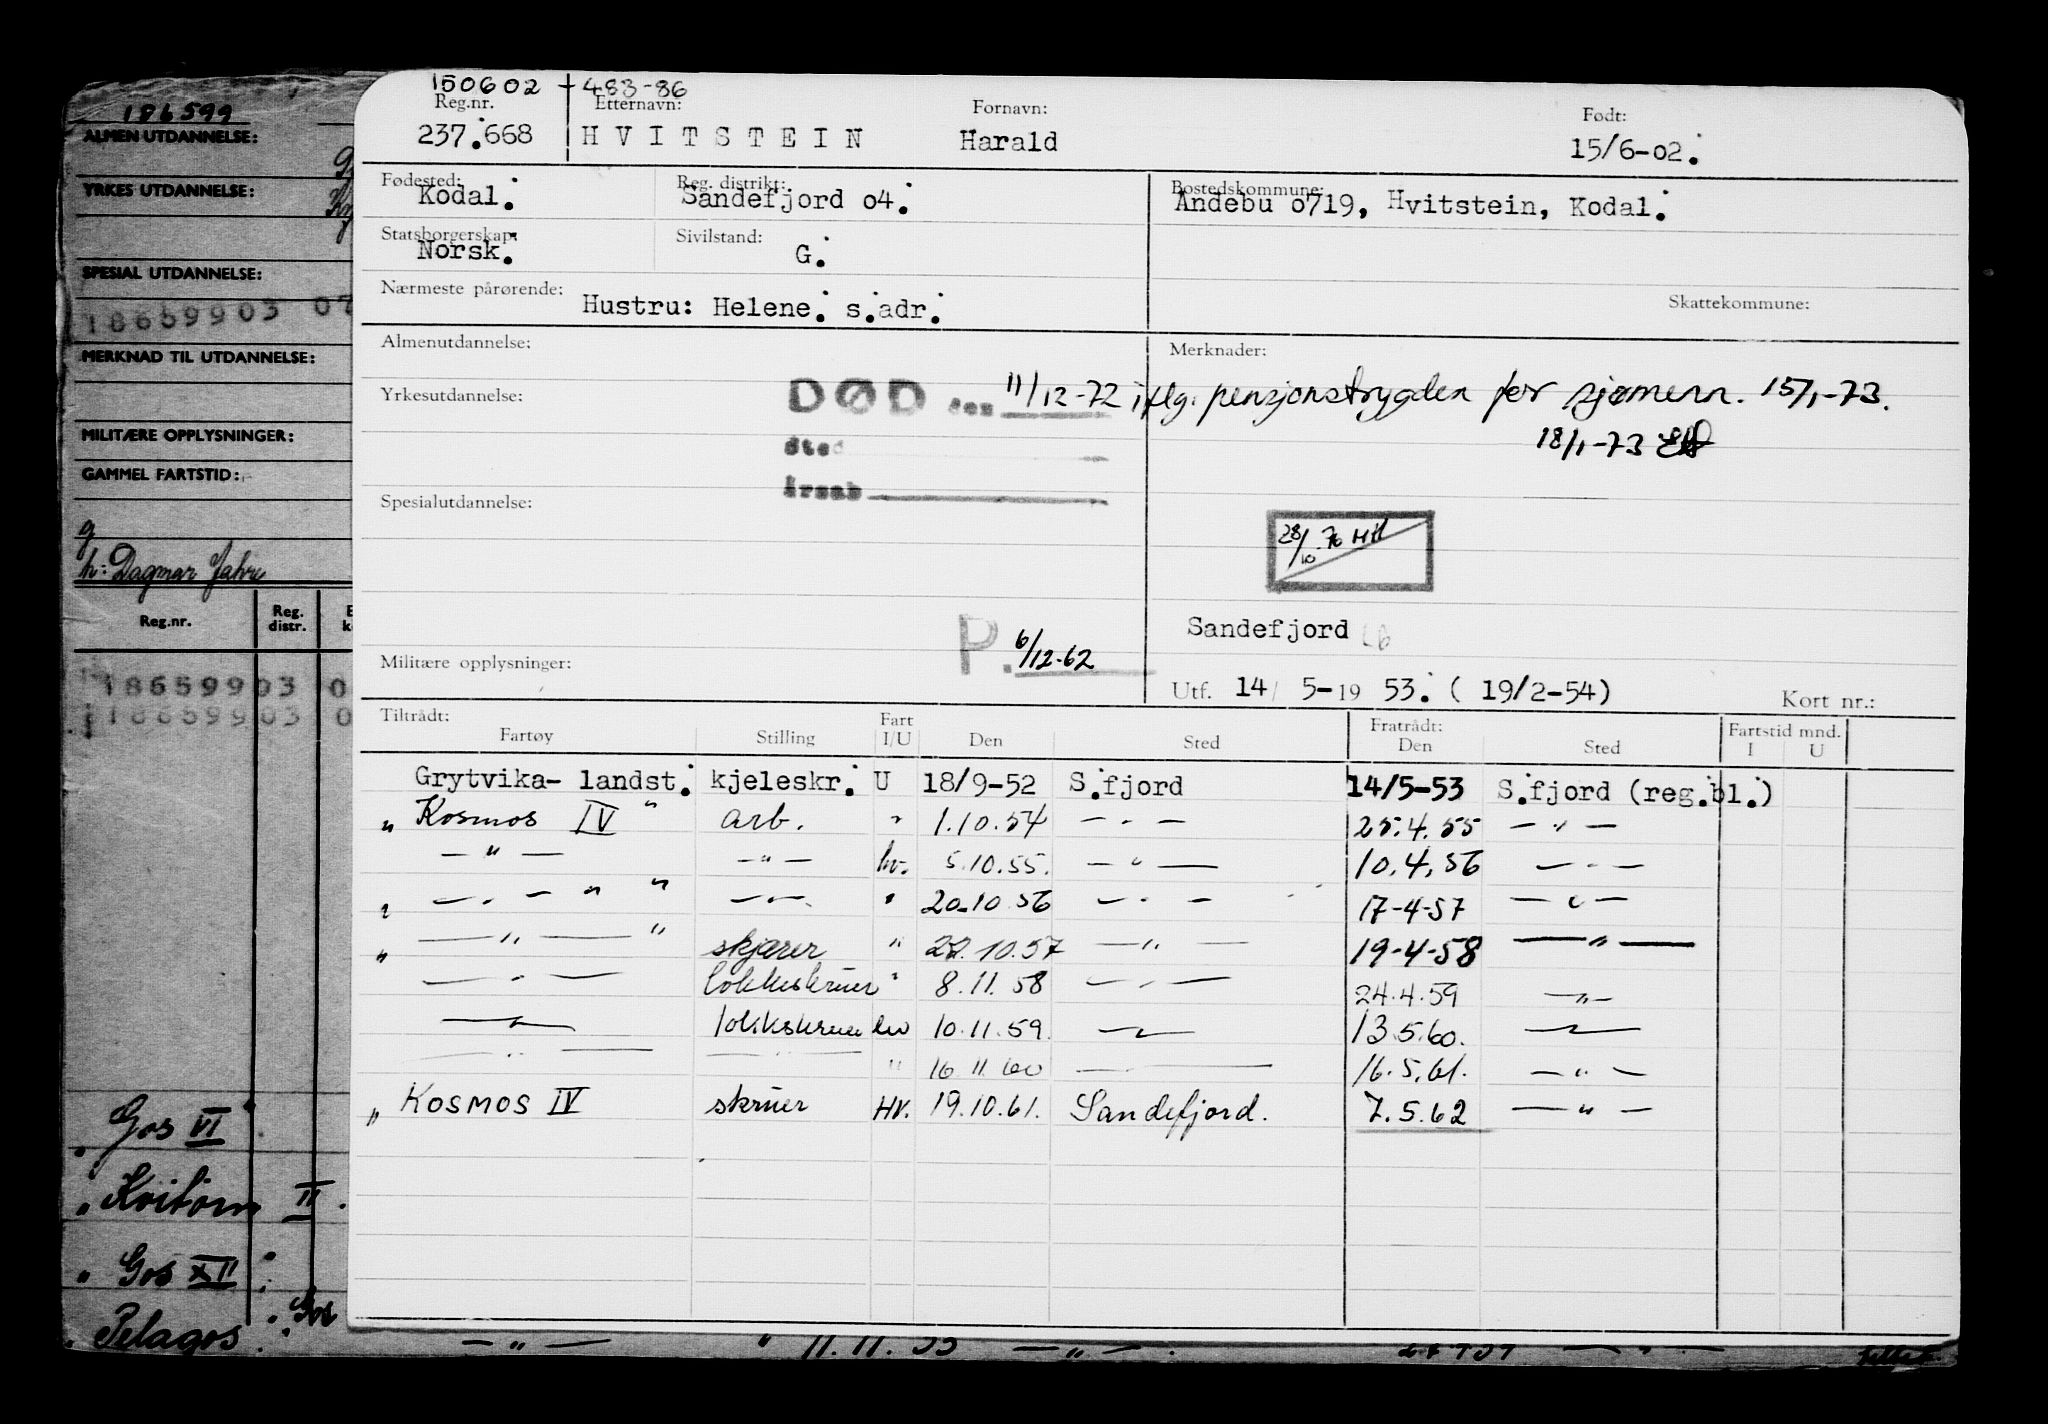 150602 483-86
Reg.nr. Etternavn: Fornavn: Født:
237.668 HVITSTEIN Harald 15/6-02.
Fødested: Reg. distrikt: Bostedskommune:
Kodal. Sandefjord 04. Andebu 0719, Hvitstein, Kodal.
Statsborgerskap: Sivilstand:
Norsk. G.
Nærmeste pårørende: Skattekommune:
Hustru: Helene. s.adr.
Almenutdannelse: Merknader:
Yrkesutdannelse: DØD den 11/12-72 iflg. pensjonstrygden for sjømenn. 15/1-73.
18/1-73
sted
årsak
Spesialutdannelse:
28/10.76 HH
Sandefjord
P. 6/12-62
Militære opplysninger:
Utf. 14/ 5-19 53. ( 19/2-54) Kort nr.:
Tiltrådt: Fart Fratrådt: Fartstid mnd.
Fartøy Stilling I/U Den Sted Den Sted I U
Grytvika- landst. kjeleskr. U 18/9-52 S.fjord 14/5-53 S.fjord (reg.bl.)
" Kosmos IV " arb. " 1.10.54 — " — 25.4.55 — " —
— " — — " — hv. 5.10.55. — " — 10.4.56 — " —
" — " — " " — " — " 20.10.56 — " — 17-4-57 — " —
" — " — " skjærer " 22.10.57 — " — 19-4-58 — " —
— " — " 8.11.58 — " — 24.4.59 — " —
— " — hv 10.11.59. — " — 13.5.60. — " —
— " — — " — " 16.11.60 — 16.5.61. — " —
" KOSMOS IV skruer HV. 19.10.61. Sandefjord. 7.5.62 — " —
186599
ALMEN UTDANNELSE:
YRKES UTDANNELSE:
SPESIAL UTDANNELSE:
18659903 07
MERKNAD TIL UTDANNELSE:
MILITÆRE OPPLYSNINGER:
GAMMEL FARTSTID:
g
h: Dagmar Jahre
Reg.nr. Reg. distr.
18659903 0
18659903 0
" Gos VI "
" Kvitørn II.
" Gos XII
" Pelagos. — " — " 11.11.55 — " —